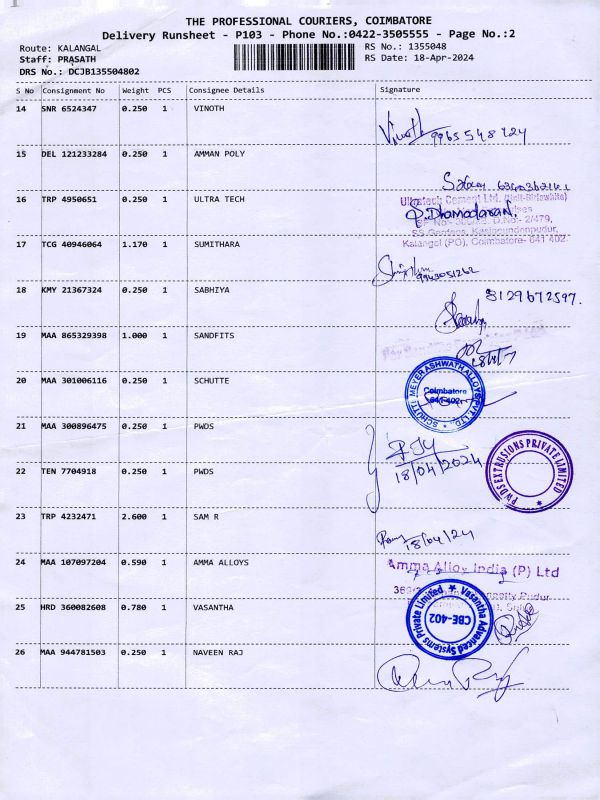 THE PROFESSIONAL COURIERS, COIMBATORE
Delivery Runsheet - P103 - Phone No.:0422-3505555 - Page No.:2
Route: KALANGAL
RS No.: 1355048
Staff: PRASATH
RS Date: 18-Apr-2024
DRS No.: DCJB135504802
S No Consignment No Weight PCS Consignee Details Signature
14 SNR 6524347 0.250 1 VINOTH
Vinoth 9965548424
15 DEL 121233284 0.250 1 AMMAN POLY
16 TRP 4950651 0.250 1 ULTRA TECH
Ultratech Cement Ltd. (Unit-Birlawhite)
P. Dhamodaran.
D.No.- 2/479,
Kalangal (PO), Coimbatore- 641 402.
17 TCG 40946064 1.170 1 SUMITHARA
9943051262
18 KMY 21367324 0.250 1 SABHIYA
8129672597.
19 MAA 865329398 1.000 1 SANDFITS
20 MAA 301006116 0.250 1 SCHUTTE
SCHUTTE MEYER ASHWATH ALLOYS PVT. LTD.,
Coimbatore
641 402.
21 MAA 300896475 0.250 1 PWDS
18/04/2024
PWDS EXTRUSIONS PRIVATE LIMITED
22 TEN 7704918 0.250 1 PWDS
23 TRP 4232471 2.600 1 SAM R
18/04/24
24 MAA 107097204 0.590 1 AMMA ALLOYS
Amma Alloy India (P) Ltd
25 HRD 360082608 0.780 1 VASANTHA
Vasantha Advanced Systems Private Limited
CBE-402
26 MAA 944781503 0.250 1 NAVEEN RAJ